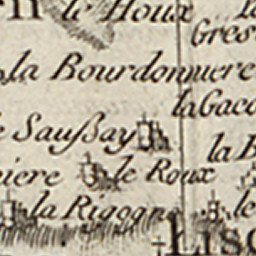 le Houx
Gres
la Bourdonniere
la Gaco
le Saußay
la B
iere
le Roux
la Rigogne
le
Liso